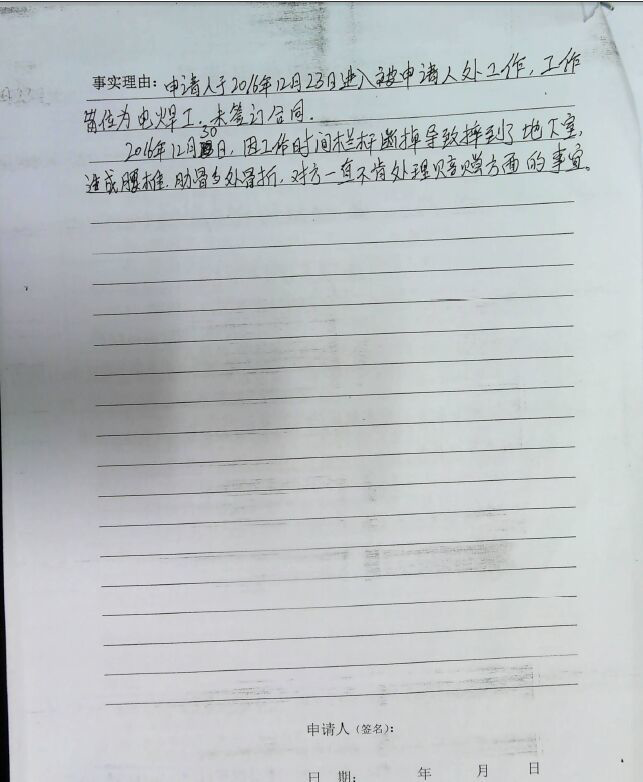 事实理由：申请人于2016年12月23日进入被申请人处工作，工作
岗位为电焊工。未签订合同。
2016年12月30日，因工作时间栏杆断掉导致摔到了地下室，
造成腰椎，肋骨多处骨折，对方一直不肯处理赔赏方面的事宜。
申请人（签名）：
日 期： 年 月 日